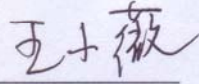 王小薇